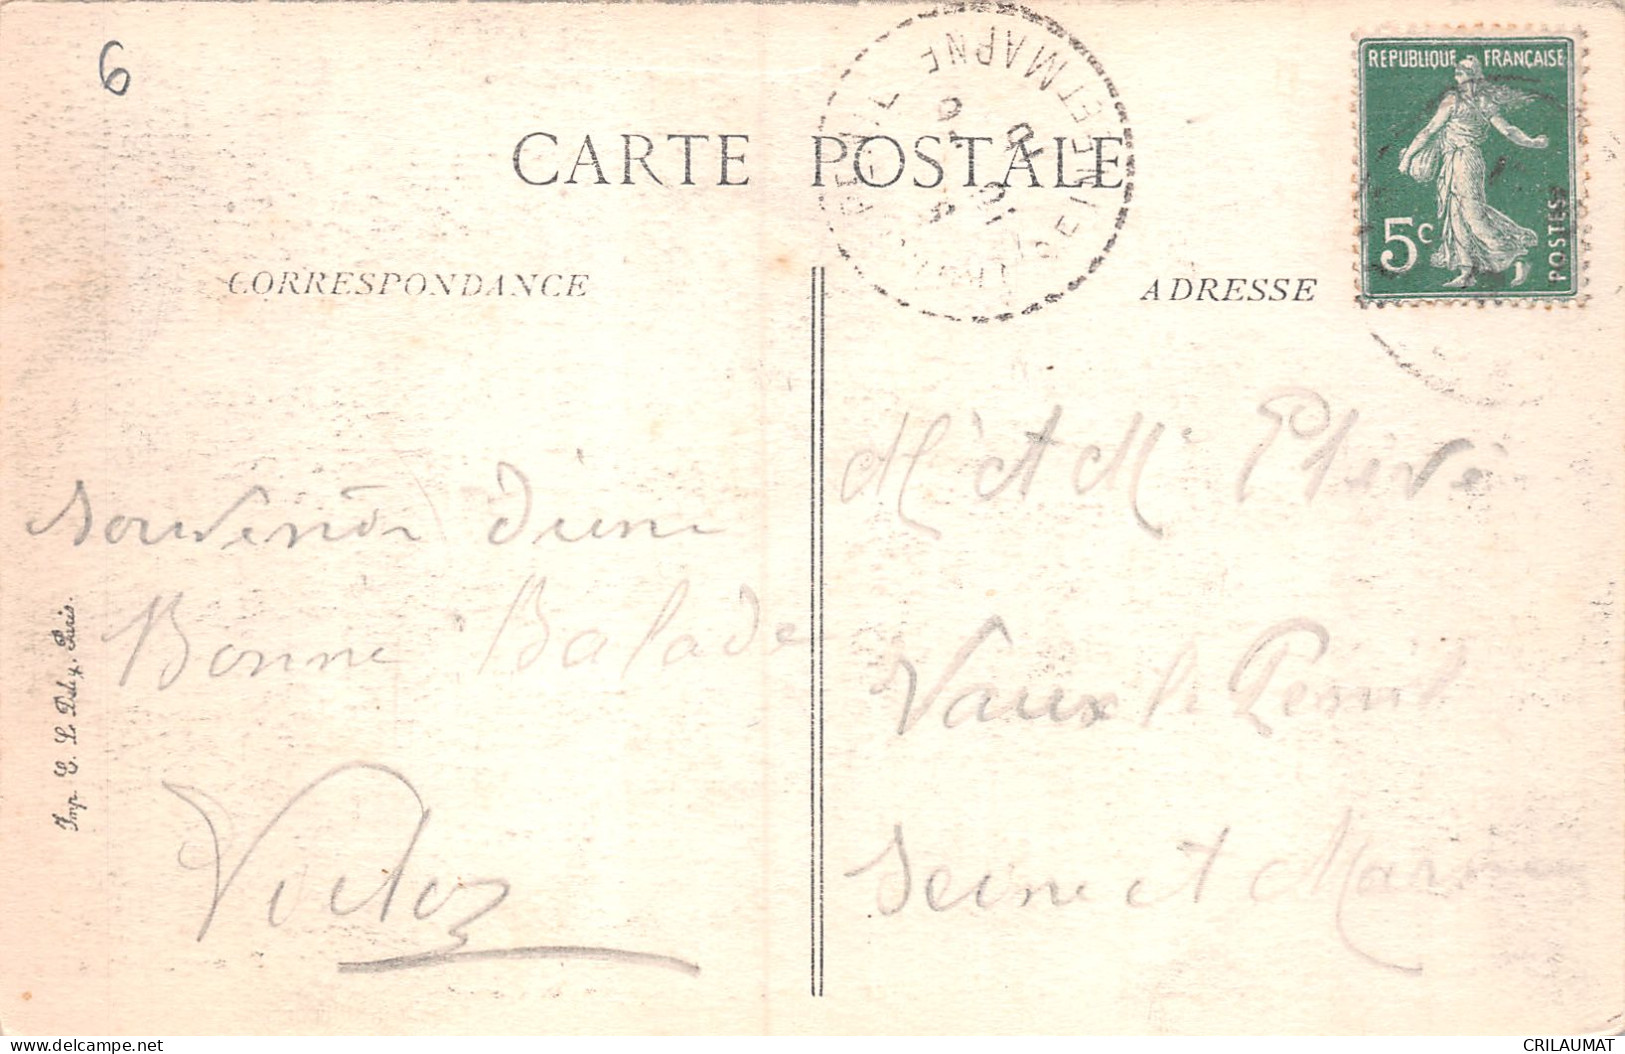 6
CARTE POSTALE
REPUBLIQUE FRANÇAISE
5c
POSTES
SEINE ET MARNE
CORRESPONDANCE
ADRESSE
Souvenir d'une
Bonne Balade
Victor
Mr et Me
Vaux le Penil
Seine et Marne
Imp. C. L. Paris.
delcampe.net
CRILAUMAT